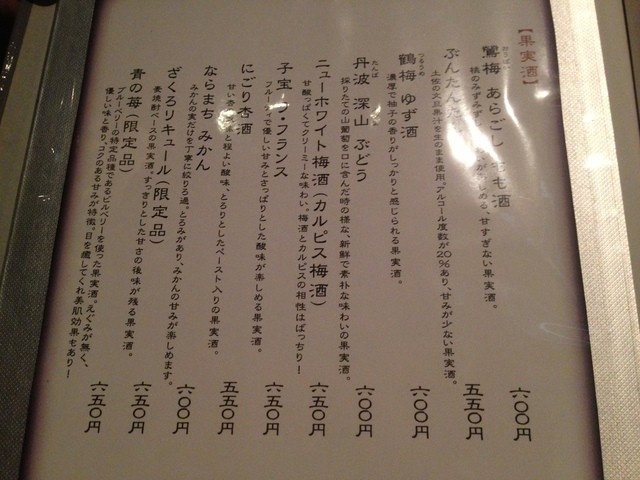 【果実酒】
鶯梅 あらごし もも酒
桃のみずみず 楽しめる、甘すぎない果実酒。
六〇〇円
ぶんたん
土佐の文旦果汁を生のまま使用。アルコール度数が20%あり、甘みが少ない果実酒。
五五〇円
つるうめ
鶴梅 ゆず酒
濃厚で柚子の香りがしっかりと感じられる果実酒。
六〇〇円
たんば
丹波 深山 ぶどう
採りたての山葡萄を口に含んだ時の様な、新鮮で素朴な味わいの果実酒。
六〇〇円
ニューホワイト梅酒(カルピス梅酒)
甘酸っぱくてクリーミーな味わい。梅酒とカルピスの相性はばっちり!
六五〇円
子宝 ラ・フランス
フルーティで優しい甘みとさっぱりとした酸味が楽しめる果実酒。
六五〇円
にごり杏酒
甘い香りと程よい酸味、とろりとしたペースト入りの果実酒。
五五〇円
ならまち みかん
みかんの実だけを丁寧に絞りる過。とろみがあり、みかんの甘みが楽しめます。
六〇〇円
ざくろリキュール(限定品)
麦焼酎ベースの果実酒。すっきりとした甘さの後味が残る果実酒。
六五〇円
青の苺(限定品)
ブルーベリーの特定品種であるビルベリーを使った果実酒。えぐみが無く、
優しい味と香り、コクのある甘みが特徴。目を癒してくれ美肌効果もあり!
六五〇円